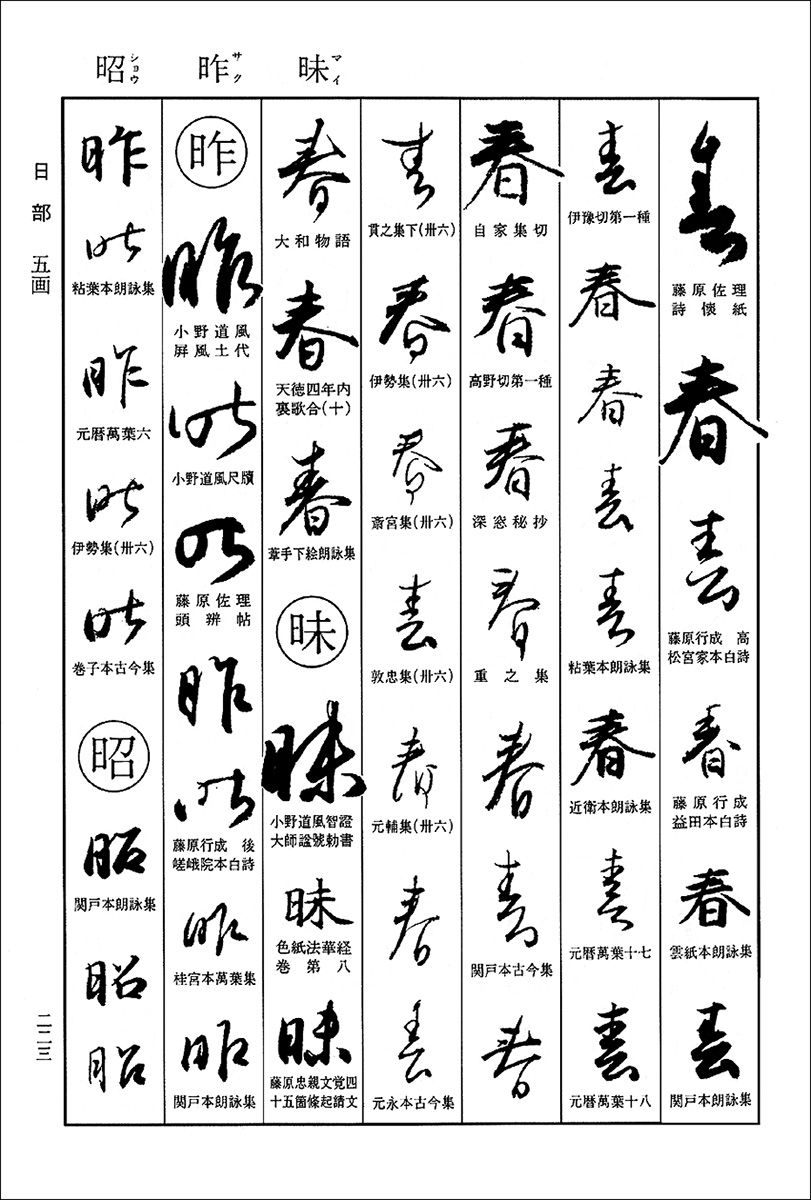 昭ショウ
昨サク
昧マイ
日部 五画
春
藤原佐理
詩懐紙
春
春
藤原行成 高
松宮家本白詩
春
藤原行成
益田本白詩
春
雲紙本朗詠集
春
関戸本朗詠集
春
伊豫切第一種
春
春
春
春
粘葉本朗詠集
春
近衛本朗詠集
春
元暦萬葉十七
春
元暦萬葉十八
春
自家集切
春
高野切第一種
春
深窓秘抄
春
重之集
春
春
関戸本古今集
春
春
貫之集下(卅六)
春
伊勢集(卅六)
春
斎宮集(卅六)
春
敦忠集(卅六)
春
元輔集(卅六)
春
春
元永本古今集
春
大和物語
春
天徳四年内
裏歌合(十)
春
葦手下絵朗詠集
昧
昧
小野道風智證
大師諡號勅書
昧
色紙法華経
巻第八
昧
藤原忠親文覚四
十五箇條起請文
昨
昨
小野道風
屏風土代
昨
小野道風尺牘
昨
藤原佐理
頭辨帖
昨
昨
藤原行成 後
嵯峨院本白詩
昨
桂宮本萬葉集
昨
関戸本朗詠集
昨
昨
粘葉本朗詠集
昨
元暦萬葉六
昨
伊勢集(卅六)
昨
巻子本古今集
昭
昭
関戸本朗詠集
昭
昭
二二三